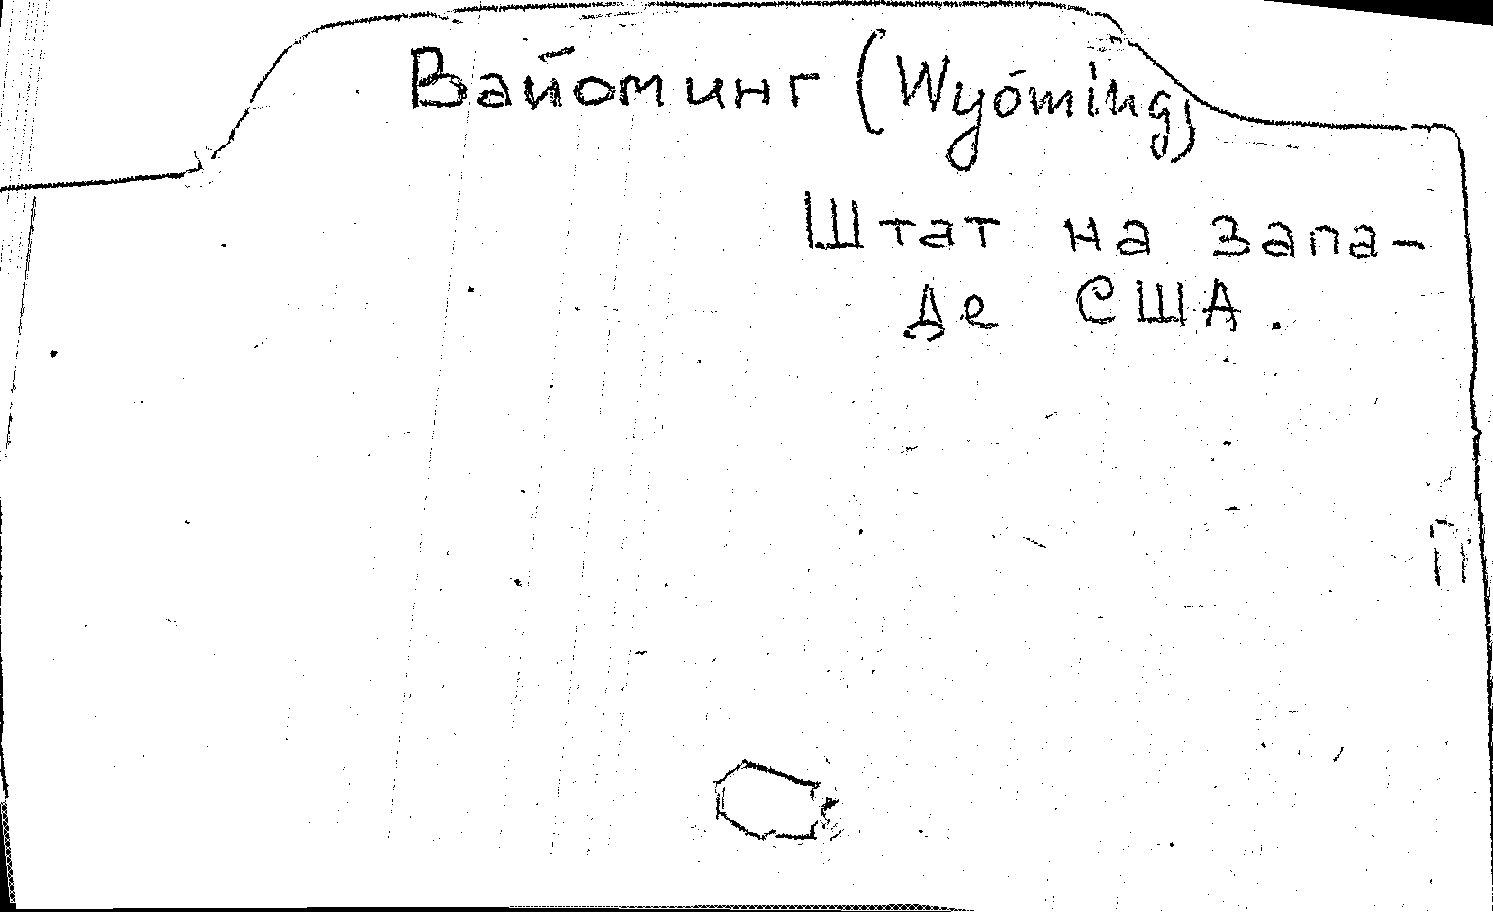 Вайоминг (Wyóming)
Штат на запа-
де США.
П